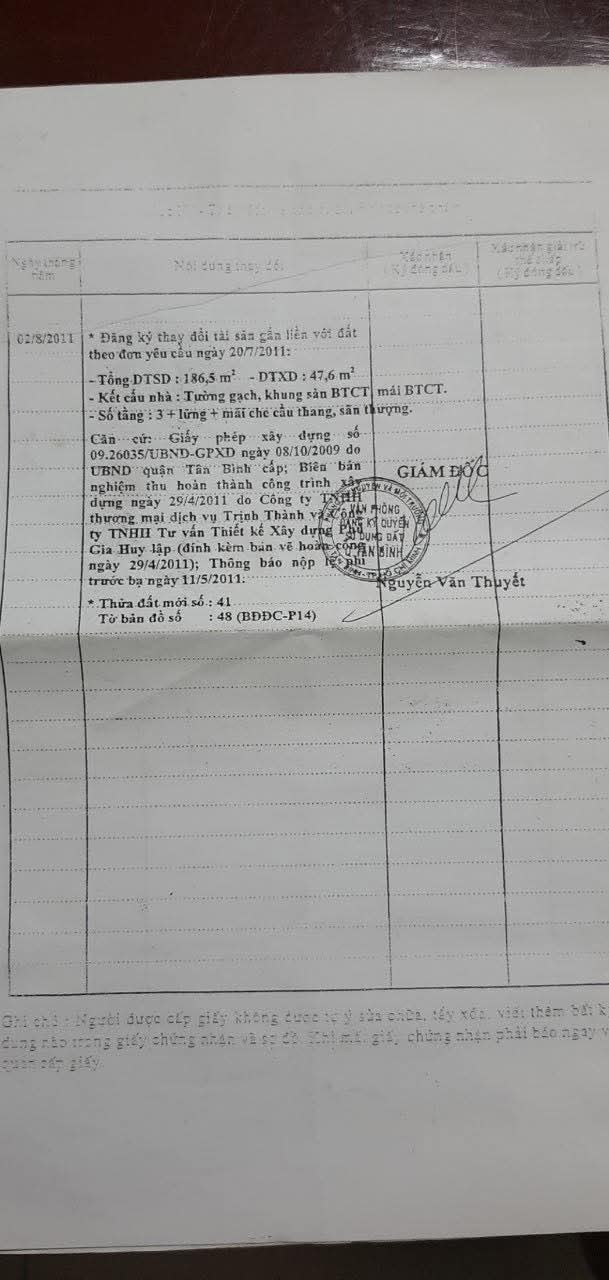 Ngày tháng năm
Nội dung thay đổi
Xác nhận
( Ký đóng dấu )
Xác nhận giải trừ thế chấp
( Ký đóng dấu )
02/8/2011
* Đăng ký thay đổi tài sản gắn liền với đất
theo đơn yêu cầu ngày 20/7/2011:
- Tổng DTSD : 186,5 m² - DTXD : 47,6 m²
- Kết cấu nhà : Tường gạch, khung sàn BTCT, mái BTCT.
- Số tầng : 3 + lửng + mái che cầu thang, sân thượng.
Căn cứ: Giấy phép xây dựng số
09.26035/UBND-GPXD ngày 08/10/2009 do
UBND quận Tân Bình cấp; Biên bản
nghiệm thu hoàn thành công trình xây
dựng ngày 29/4/2011 do Công ty TNHH
thương mại dịch vụ Trịnh Thành và Công
ty TNHH Tư vấn Thiết kế Xây dựng Phú
Gia Huy lập (đính kèm bản vẽ hoàn công
ngày 29/4/2011); Thông báo nộp lệ phí
trước bạ ngày 11/5/2011.
* Thửa đất mới số : 41
Tờ bản đồ số : 48 (BĐĐC-P14)
GIÁM ĐỐC
VĂN PHÒNG
ĐĂNG KÝ QUYỀN
SỬ DỤNG ĐẤT
TÂN BÌNH
Nguyễn Văn Thuyết
Ghi chú : Người được cấp giấy không được tự ý sửa chữa, tẩy xóa, viết thêm bất k
dung nào trong giấy chứng nhận và sơ đồ. Khi mất giấy chứng nhận phải báo ngay v
quan cấp giấy.